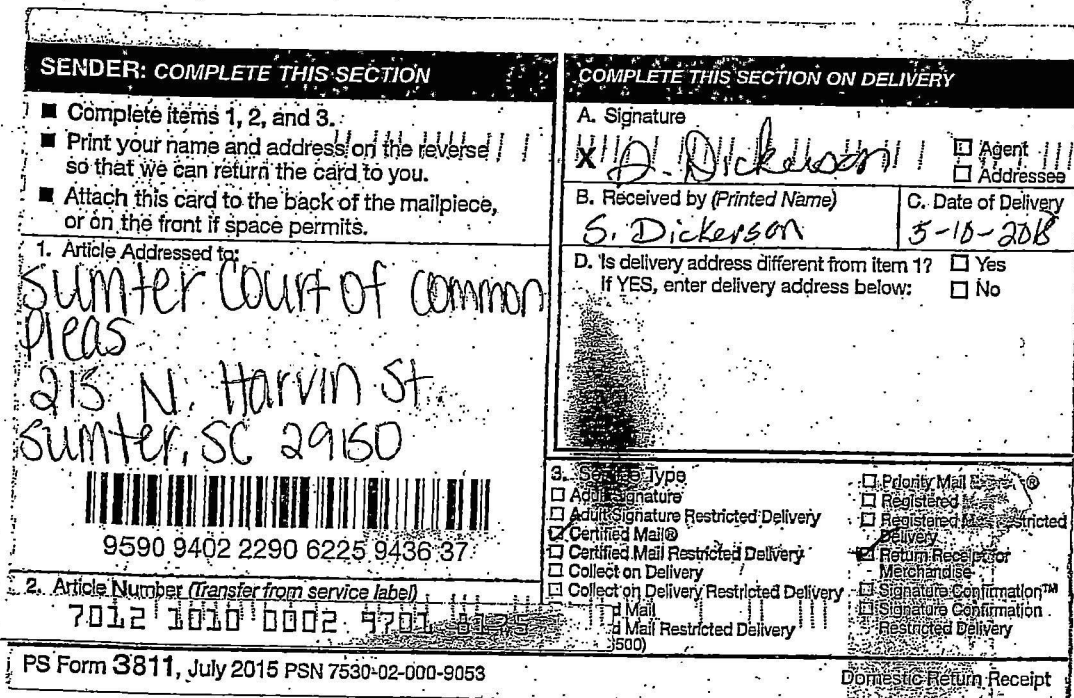 SENDER: COMPLETE THIS SECTION
■ Complete items 1, 2, and 3.
■ Print your name and address on the reverse
so that we can return the card to you.
■ Attach this card to the back of the mailpiece,
or on the front if space permits.
1. Article Addressed to:
Sumter Court of Common
Pleas
215 N. Harvin St
Sumter, SC 29150
9590 9402 2290 6225 9436 37
2. Article Number (Transfer from service label)
7012 1010 0002 9701
COMPLETE THIS SECTION ON DELIVERY
A. Signature
X Dickerson
☐ Agent
☐ Addressee
B. Received by (Printed Name)
S. Dickerson
C. Date of Delivery
5-10-2018
D. Is delivery address different from item 1? ☐ Yes
If YES, enter delivery address below: ☐ No
3. Service Type
☐ Adult Signature
☐ Adult Signature Restricted Delivery
☑ Certified Mail®
☐ Certified Mail Restricted Delivery
☐ Collect on Delivery
☐ Collect on Delivery Restricted Delivery
d Mail
d Mail Restricted Delivery
500)
☐ Priority Mail
☐ Registered
☐ Registered
Delivery
☑ Return Receipt for
Merchandise
☐ Signature Confirmation™
☐ Signature Confirmation
Restricted Delivery
PS Form 3811, July 2015 PSN 7530-02-000-9053
Domestic Return Receipt